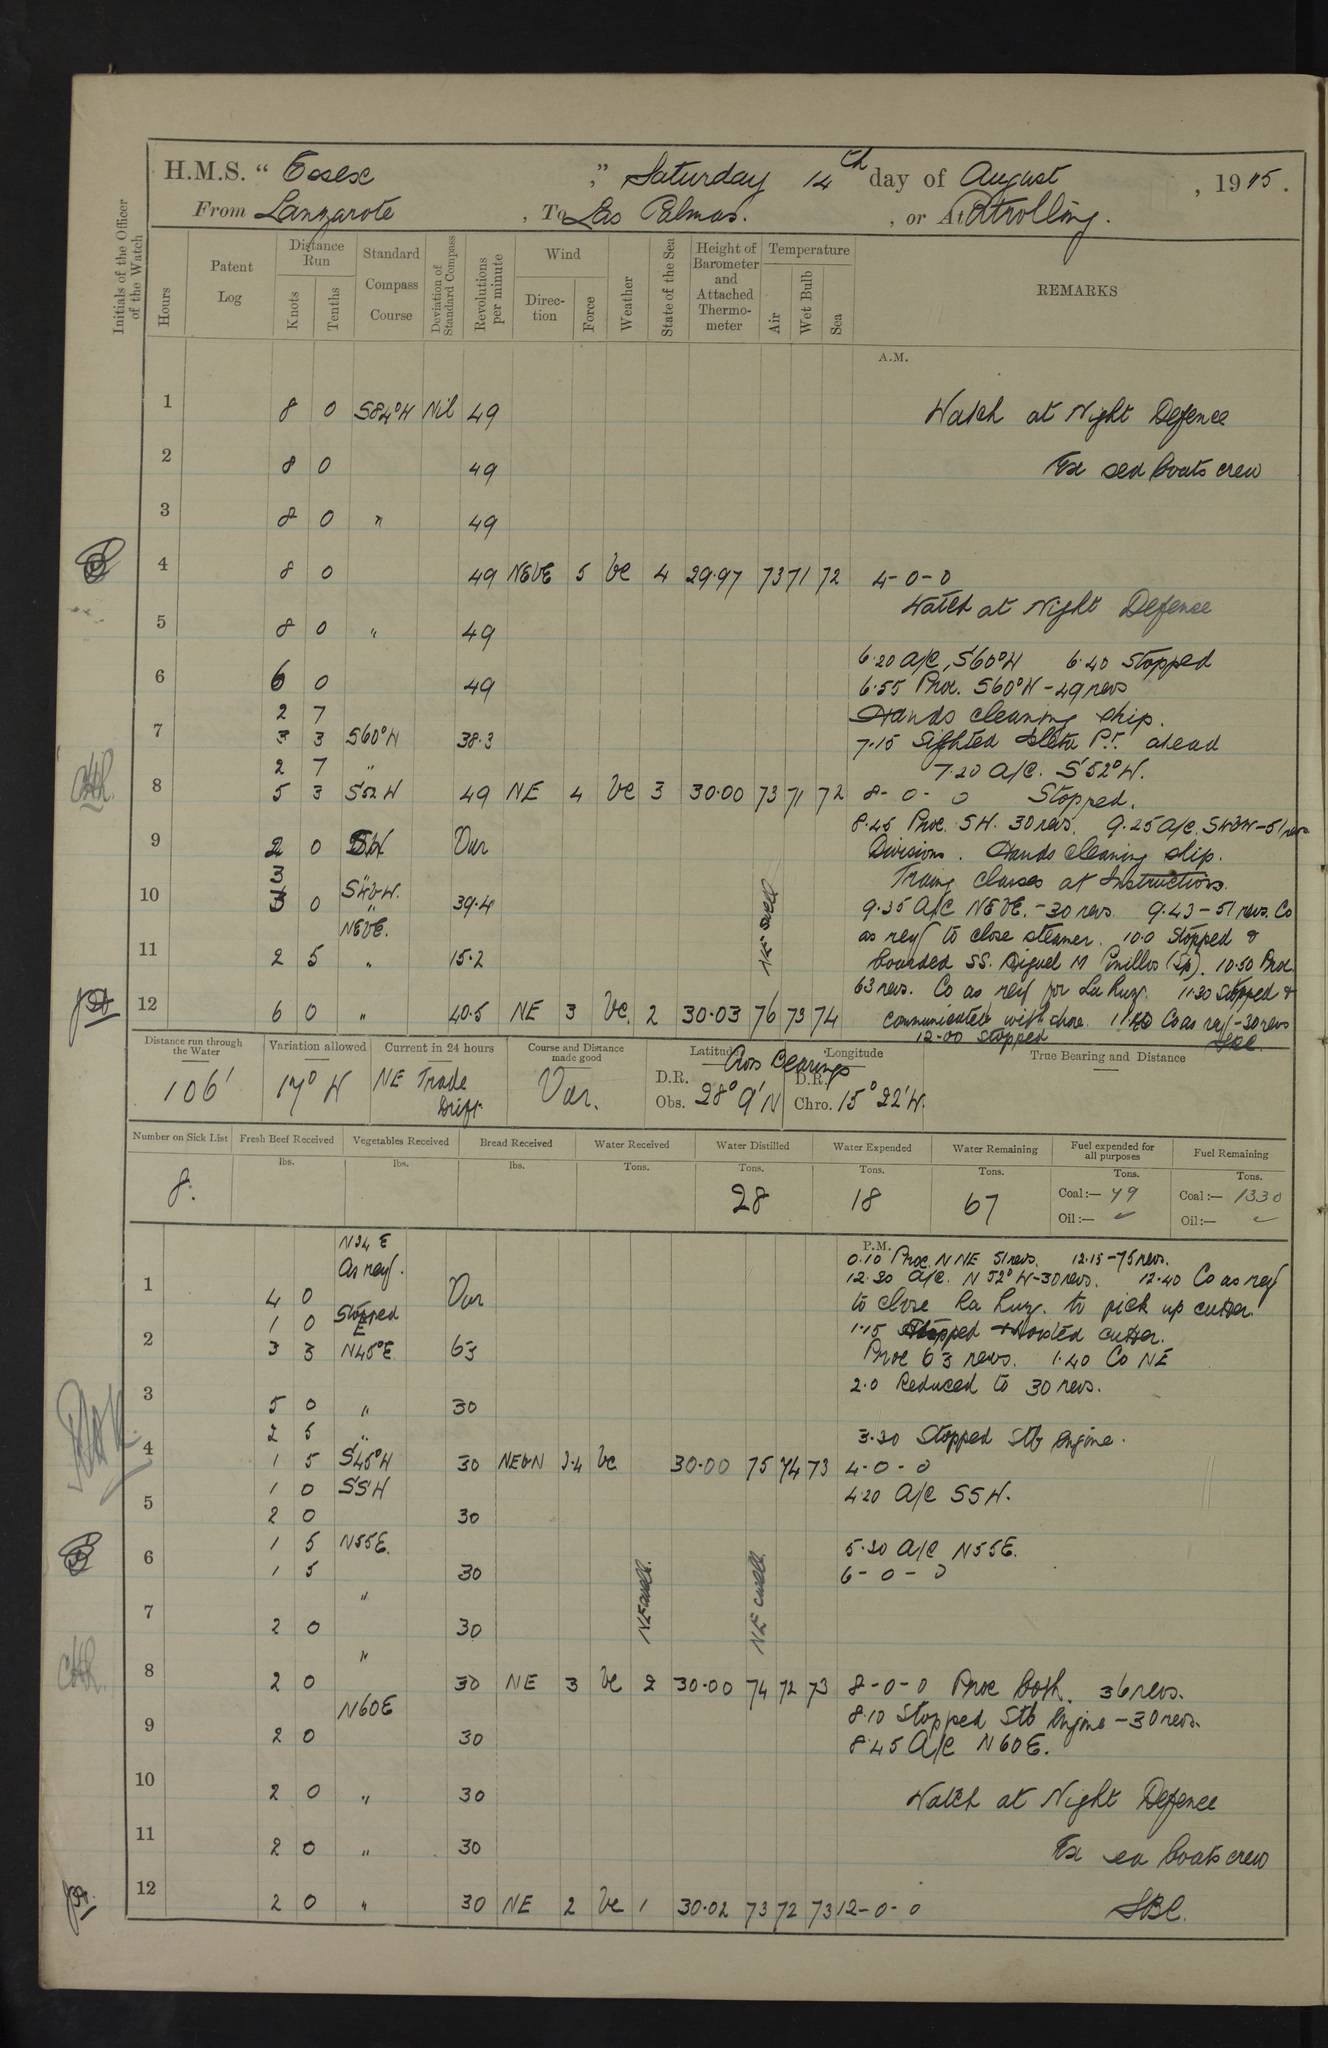 H.M.S. " Essex ," Saturday 14th day of August , 1915.
From Lanzarote , To Las Palmas. , or At Patrolling.
Initials of the Officer of the Watch
Hours
Patent Log
Distance Run
Knots
Tenths
Standard Compass Course
Deviation of Standard Compass
Revolutions per minute
Wind
Direction
Force
Weather
State of the Sea
Height of Barometer and Attached Thermometer
Temperature
Air
Wet Bulb
Sea
REMARKS
A.M.
1 8 0 S84°W Nil 49 Watch at Night Defence
2 8 0 49 Ex sea boats crew
3 8 0 " 49
4 8 0 49 NEbE 5 bc 4 29.97 73 71 72 4-0-0
Watch at Night Defence
5 8 0 " 49
6.20 A/C S60°W 6.40 Stopped
6 6 0 49 6.55 Proc. S60°W - 49 revs
2 7 Hands cleaning ship.
7 3 3 S60°W 38.3 7.15 Sighted Isleta Pt. ahead
2 7 " 7.20 A/C. S52°W.
8 5 3 S52W 49 NE 4 bc 3 30.00 73 71 72 8-0-0 Stopped.
8.45 Proc. SW. 30 revs. 9.25 A/C. SW3W - 51 revs
9 2 0 SW Var Divisions. Hands cleaning ship.
3 Traing Classes at Instructions.
10 3 0 SWbW. 39.4 9.35 A/C NEbE. - 30 revs. 9.43 - 51 revs. Co
NEbE. as req to close steamer. 10.0 Stopped &
11 2 5 " 15.2 NE swell boarded SS. Miguel M Pinillos (Sp). 10.50 Proc.
63 revs. Co as req for La Luz. 11.30 Stopped &
12 6 0 " 40.5 NE 3 bc. 2 30.03 76 73 74 communicated with shore. 11.40 Co as req - 30 revs
12.00 Stopped SBC
Distance run through the Water
106'
Variation allowed
17° W
Current in 24 hours
NE Trade Drift
Course and Distance made good
Var.
Latitude Cross Bearings Longitude
D.R. D.R.
Obs. 28° 9'N Chro. 15° 22'W.
True Bearing and Distance
Number on Sick List Fresh Beef Received Vegetables Received Bread Received Water Received Water Distilled Water Expended Water Remaining Fuel expended for all purposes Fuel Remaining
lbs. lbs. lbs. Tons. Tons. Tons. Tons. Tons. Tons.
8. 28 18 67 Coal:— 49 Coal:— 1330
Oil:— ✓ Oil:— ✓
P.M.
N24E 0.10 Proc NNE 51 revs. 12.15 - 75 revs.
1 As req. 12.30 A/C. N52°W - 30 revs. 12.40 Co as req
4 0 Var to close La Luz. to pick up cutter.
1 0 Stopped 1.15 Stopped & Hoisted cutter.
2 3 3 N45°E 63 Proc 63 revs. 1.40 Co NE
2.0 Reduced to 30 revs.
3 5 0 " 30
2 5 " 3.30 Stopped Stb Engine.
4 1 5 S45°W 30 NEbN 3.4 bc 30.00 75 74 73 4-0-0
1 0 SSW 4.20 A/C SSW.
5 2 0 30
1 5 N55E. 5.30 A/C N55E.
6 1 5 30 6-0-0
"
7 2 0 30 NE swell. NE swell.
"
8 2 0 30 NE 3 bc 2 30.00 74 72 73 8-0-0 Proc both. 36 revs.
N60E 8.10 Stopped Stb Engine - 30 revs.
9 2 0 30 8.45 A/C N60E.
10 2 0 " 30 Watch at Night Defence
11 2 0 " 30 Ex sea boats crew
12 2 0 " 30 NE 2 bc 1 30.02 73 72 73 12-0-0 SBC.